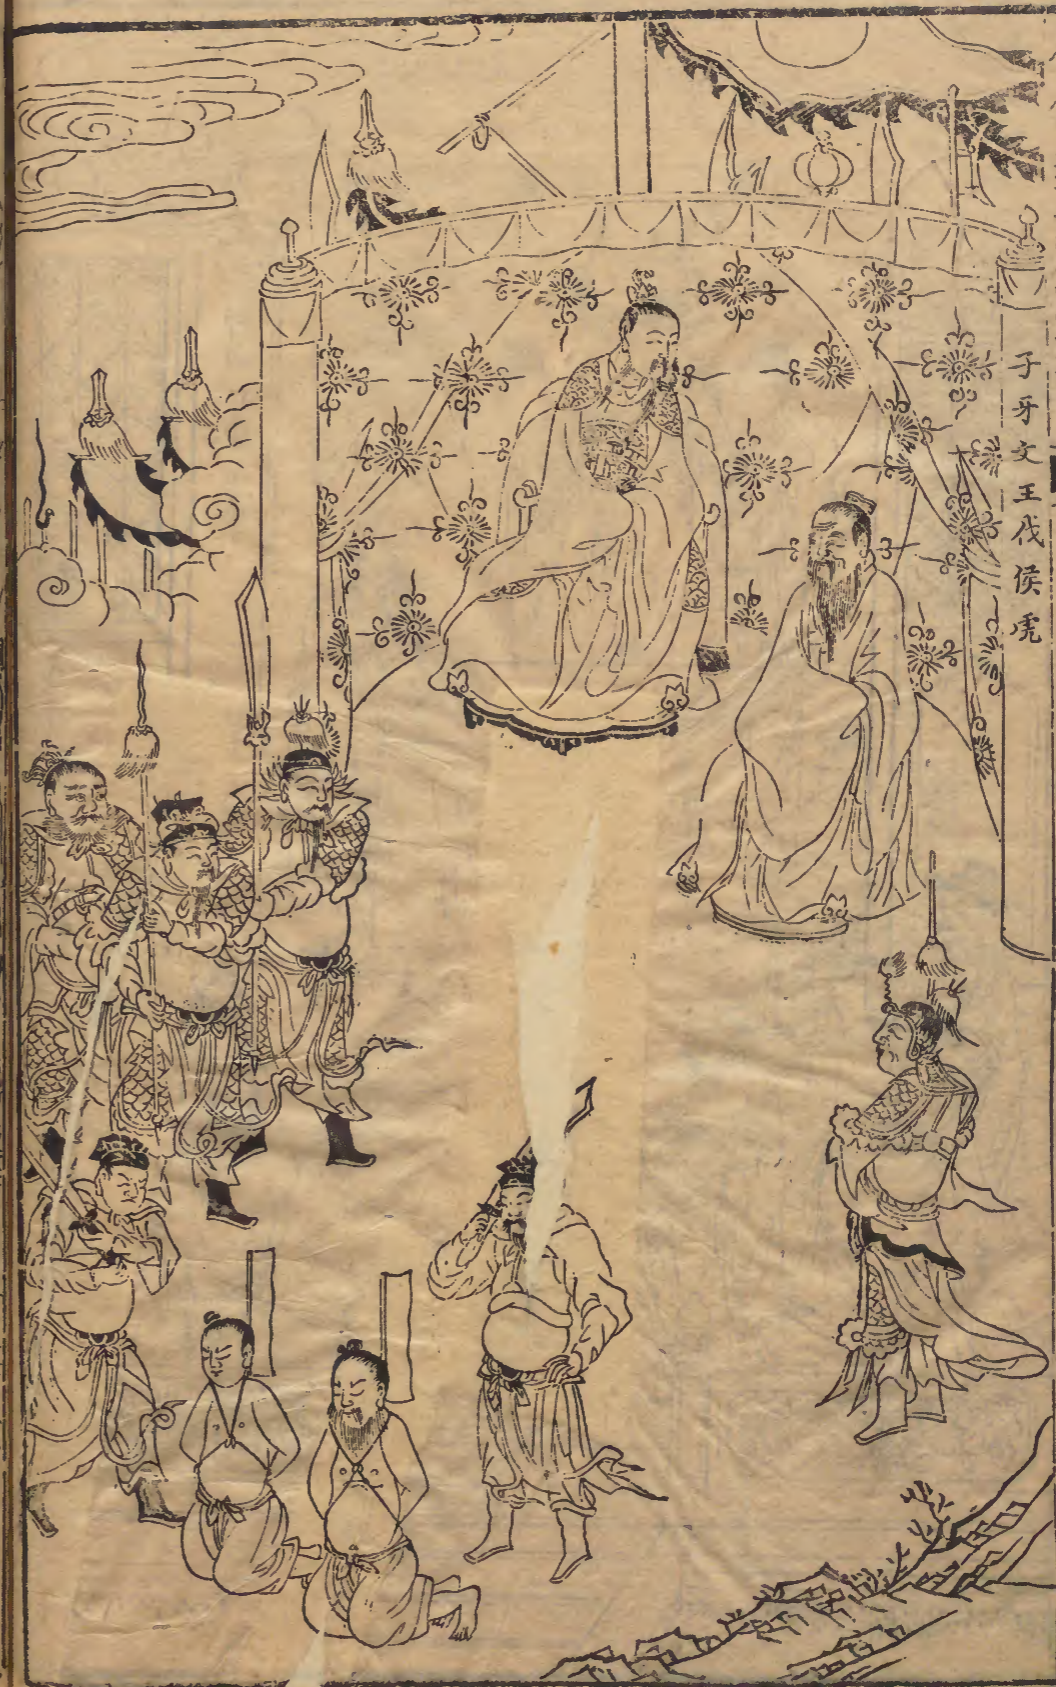 子牙文王伐侯虎